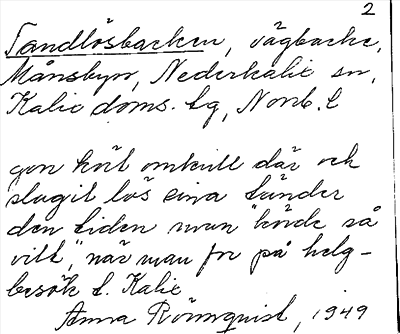 2
Tandlösbacken, vägbacke,
Månsbyn, Nederkalix sn,
Kalix doms. tg, Norrb. l
gon kört omkull där och
slagit lös sina tänder
den tiden man "körde så
vilt", när man for på helg-
besök t. Kalix
Anna Römquist, 1949